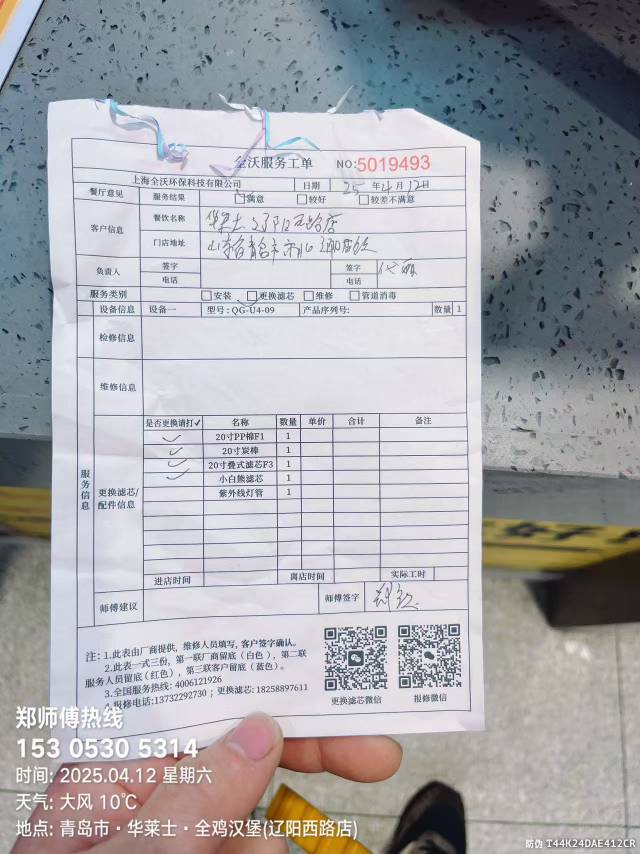 全沃服务工单 NO:5019493
上海全沃环保科技有限公司 日期 25 年 4 月 12 日
餐厅意见 服务结果 满意 较好 较差不满意
客户信息 餐饮名称 华莱士辽阳西路店
门店地址 山东省青岛市市北
负责人 签字 签字
电话 电话
服务类别 安装 更换滤芯 维修 管道消毒
设备信息 设备一 型号: QG-U4-09 产品序列号: 数量 1
检修信息
维修信息
服务信息
更换滤芯/配件信息
是否更换请打✓ 名称 数量 单价 合计 备注
✓ 20寸PP棉F1 1
✓ 20寸炭棒 1
✓ 20寸叠式滤芯F3 1
✓ 小白熊滤芯 1
紫外线灯管 1
进店时间 离店时间 实际工时
师傅建议 师傅签字
注: 1.此表由厂商提供，维修人员填写, 客户签字确认。
2.此表一式三份，第一联厂商留底（白色），第二联
服务人员留底（红色），第三联客户留底（蓝色）。
3.全国服务热线: 4006121926
4.报修电话:13732292730 ; 更换滤芯: 18258897611
更换滤芯微信 报修微信
郑师傅热线
153 0530 5314
时间: 2025.04.12 星期六
天气: 大风 10℃
地点: 青岛市·华莱士·全鸡汉堡(辽阳西路店)
防伪 T44K24DAE412CR